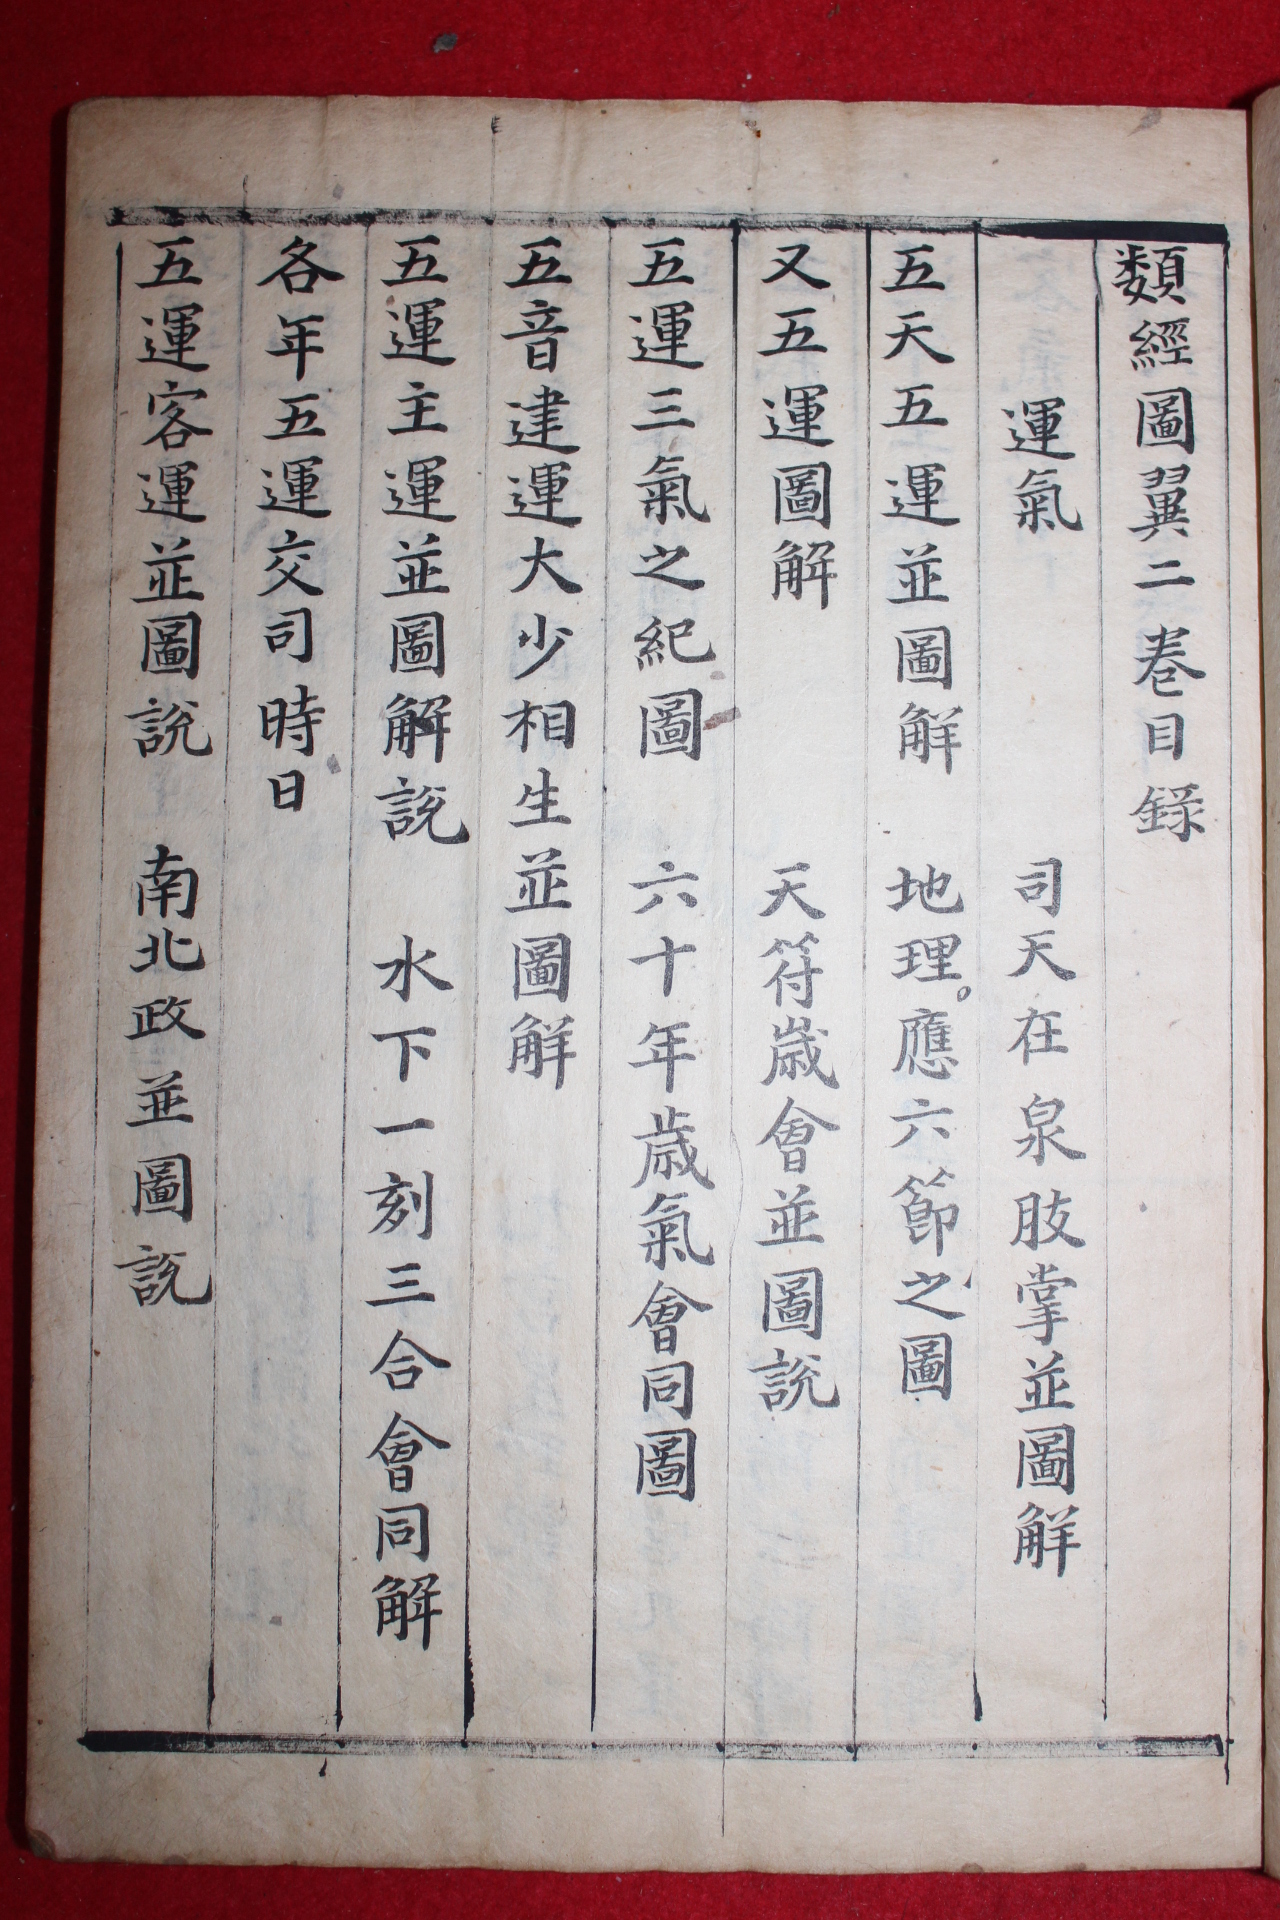 類經圖翼二巻目錄
運氣　司天在泉肢掌並圖解
五天五運並圖解　地理應六節之圖
又五運圖解　天符歲會並圖說
五運三氣之紀圖　六十年歲氣會同圖
五音建運大少相生並圖解
五運主運並圖解說　水下一刻三合會同解
各年五運交司時日
五運客運並圖說　南北政並圖說